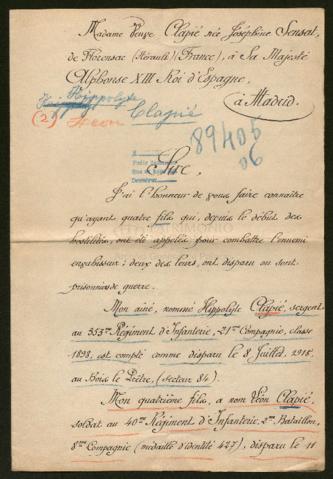 Madame Veuve Clapié née Joséphine Sensat,
de Florensac (Hérault) (France), à Sa Majesté
Alphonse XIII Roi d'Espagne,
à Madrid.
Hippolyte
Clapié
(2) Léon
89406
06
Sire,
J'ai l'honneur de vous faire connaître
qu'ayant quatre fils qui, depuis le début des
hostilités, ont été appelés pour combattre l'ennemi
envahisseur : deux des leurs, ont disparu ou sont
prisonniers de guerre.
Mon aîné, nommé Hippolyte Clapié, sergent
au 353me Régiment d'Infanterie, 21me Compagnie, classe
1898, est compté comme disparu le 8 Juillet 1915,
au Bois le Prêtre, (secteur 84).
Mon quatrième fils, a nom Léon Clapié,
soldat au 40me Régiment d'Infanterie, 2me Bataillon,
8me Compagnie (médaille d'identité 427), disparu le 11